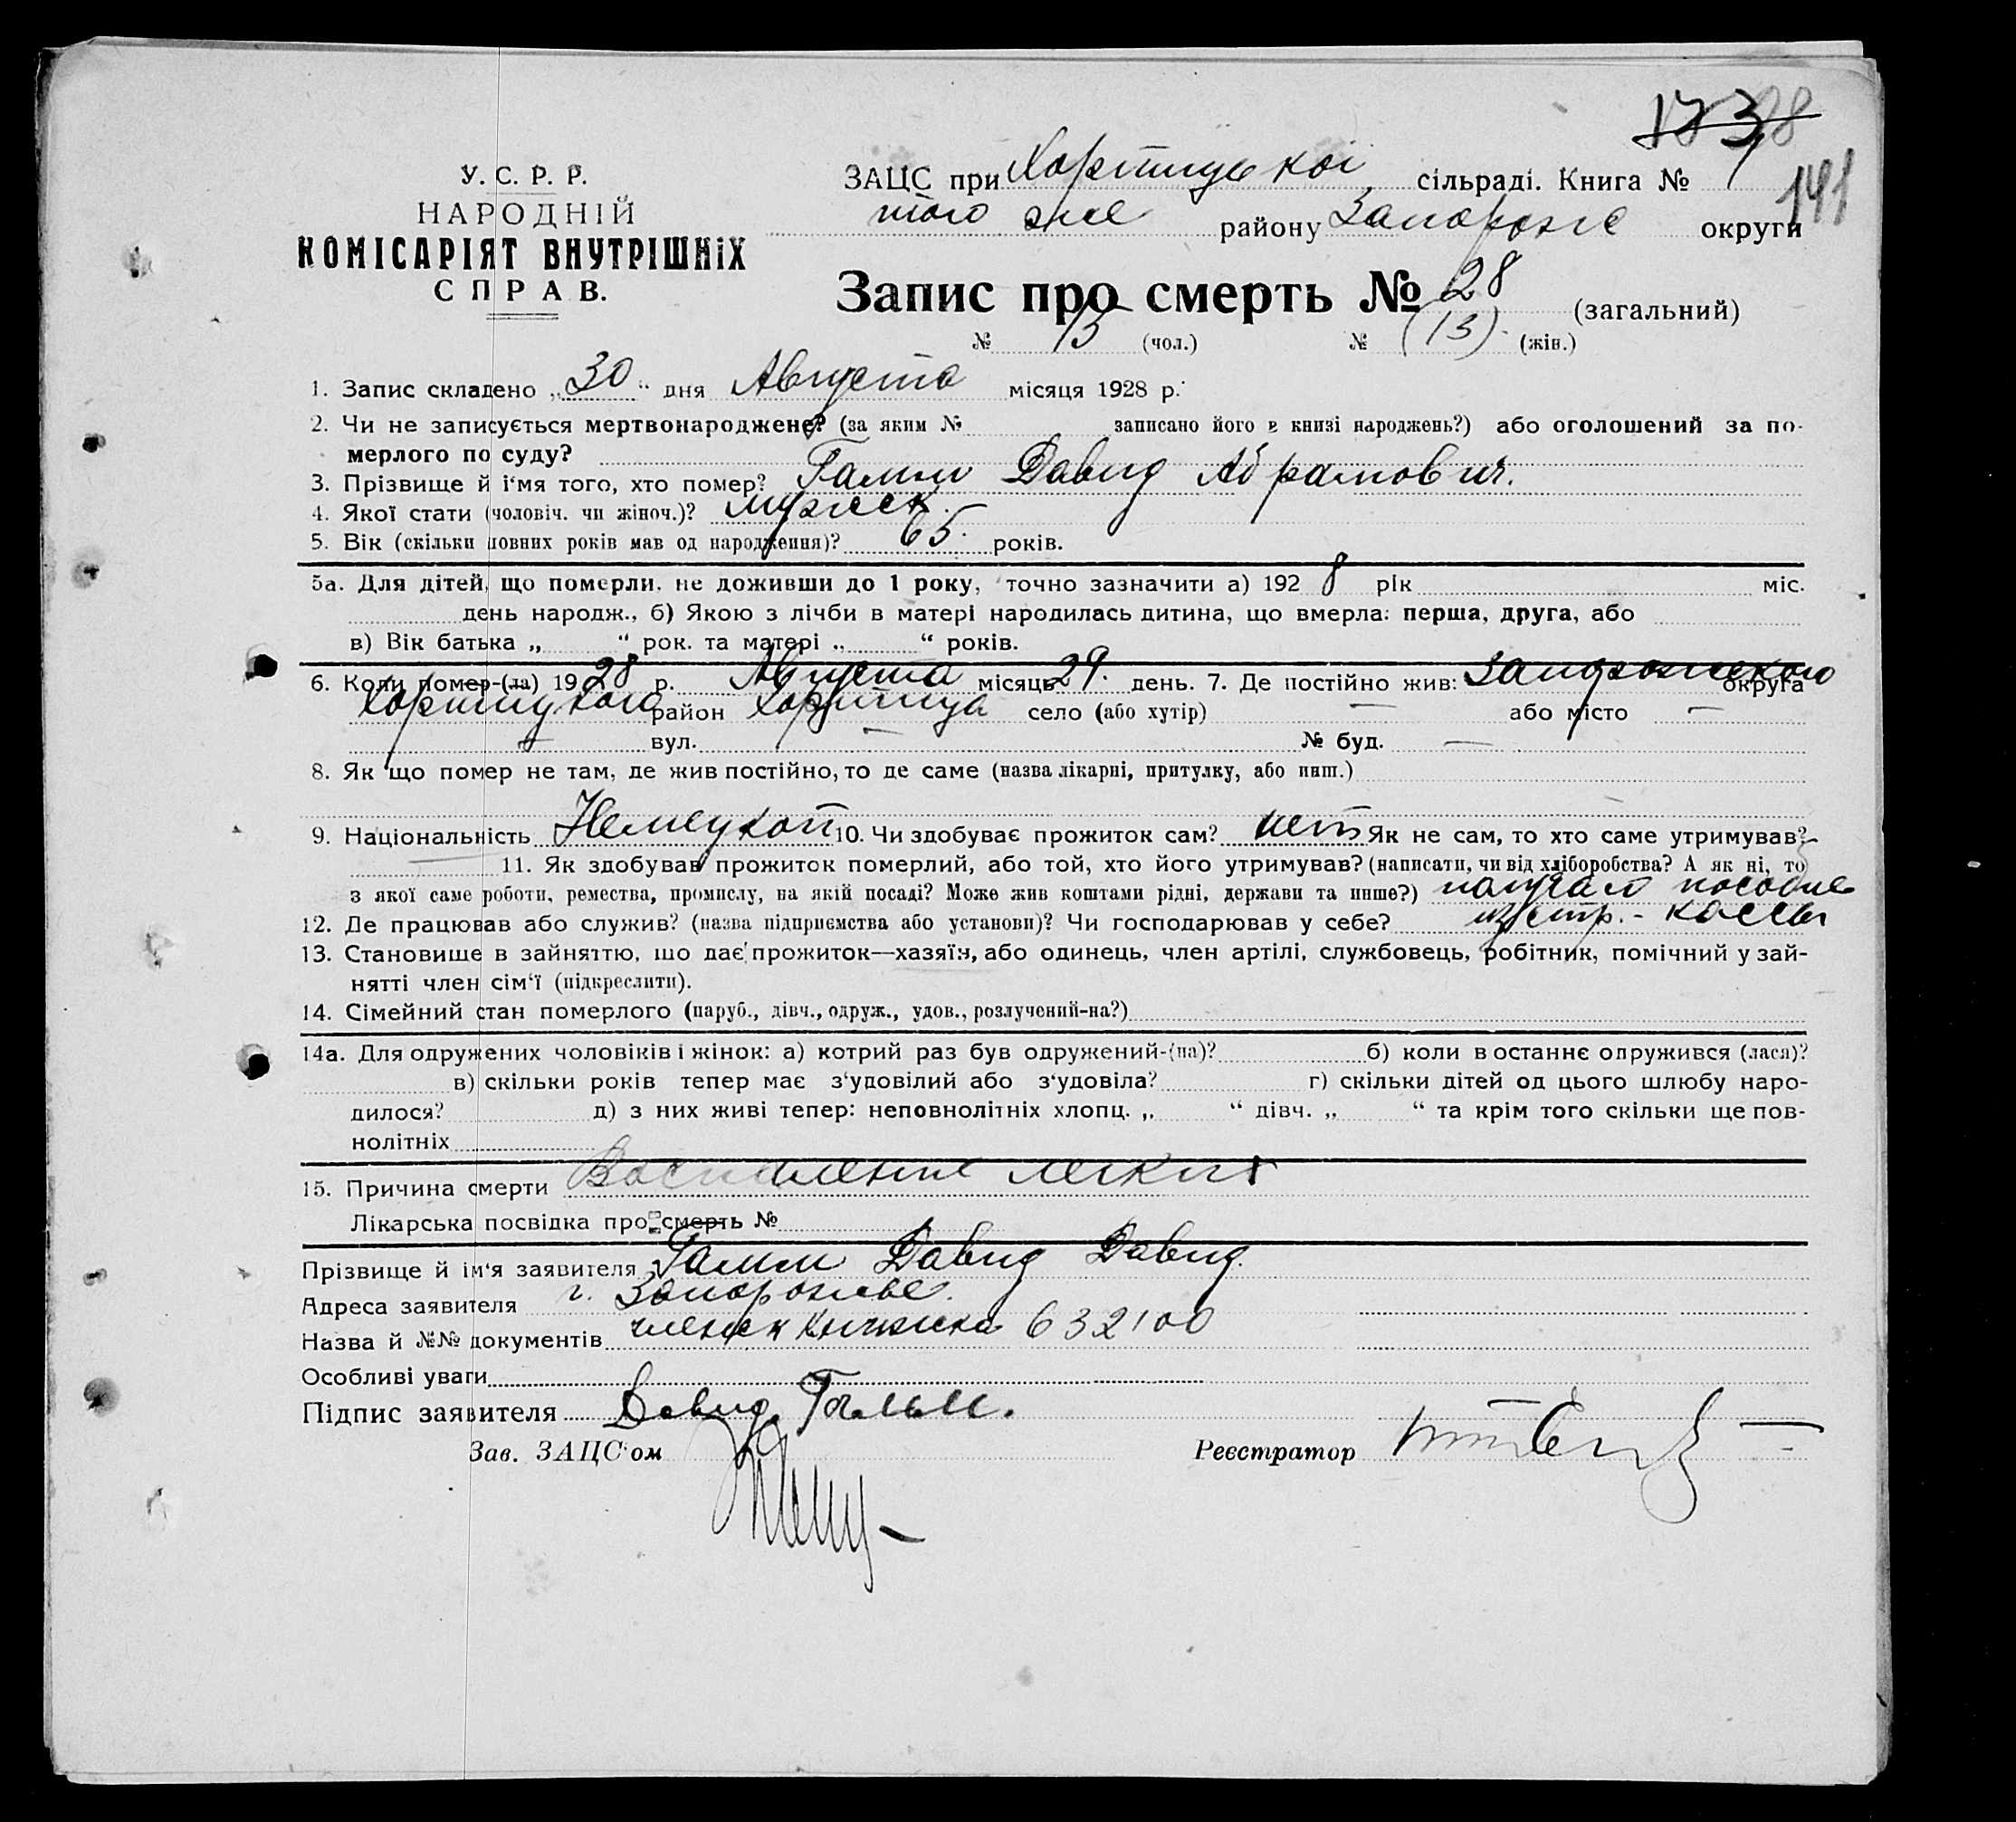 28
У. С. Р. Р.
НАРОДНІЙ
КОМІСАРІЯТ ВНУТРІШНІХ
СПРАВ.
ЗАЦС при Хортицької сільраді. Книга № 1
141
того же району Запорожс округи
Запис про смерть № 28 (загальний)
№ 15 (чол.) № (13) (жін.)
1. Запис складено „30“ дня Августа місяця 1928 р.
2. Чи не записується мертвонароджене? (за яким № записано його в книзі народжень?) або оголошений за по-
мерлого по суду?
3. Прізвище й і‘мя того, хто помер? Гамм Давид Абрамович.
4. Якої стати (чоловіч. чи жіноч.)? мужеск.
5. Вік (скільки повних років мав од народження)? 65. років.
5а. Для дітей, що померли, не доживши до 1 року, точно зазначити а) 192 8 рік міс.
день народж., б) Якою з лічби в матері народилась дитина, що вмерла: перша, друга, або
в) Вік батька „ “ рок. та матері „ “ років.
6. Коли помер-(ла) 1928 р. Августа місяць 29. день. 7. Де постійно жив: Запорожского округа
Хортицкого район Хортица село (або хутір) — або місто —
— вул. — № буд. —
8. Як що помер не там, де жив постійно, то де саме (назва лікарні, притулку, або инш.)
9. Національність Немецкой 10. Чи здобуває прожиток сам? нет Як не сам, то хто саме утримував?
11. Як здобував прожиток померлий, або той, хто його утримував? (написати, чи від хліборобства? А як ні, то
з якої саме роботи, ремества, промислу, на якій посаді? Може жив коштами рідні, держави та инше?) получал пособие
12. Де працював або служив? (назва підприємства або установи)? Чи господарював у себе? из стр.- кассы
13. Становище в зайняттю, що дає прожиток—хазяїн, або одинець, член артілі, службовець, робітник, помічний у зай-
нятті член сім‘ї (підкреслити).
14. Сімейний стан померлого (паруб., дівч., одруж., удов., розлучений-на?)
14а. Для одружених чоловіків і жінок: а) котрий раз був одружений-(на)? б) коли в останнє одружився (лася)?
в) скільки років тепер має з‘удовілий або з‘удовіла? г) скільки дітей од цього шлюбу наро-
дилося? д) з них живі тепер: неповнолітніх хлопц. „ “ дівч. „ “ та крім того скільки ще пов-
нолітніх
15. Причина смерти Воспаление легких
Лікарська посвідка про смерть №
Прізвище й ім‘я заявителя Гамм Давид Давид.
Адреса заявителя г. Запорожье.
Назва й №№ документів членск книжка 632100
Особливі уваги
Підпис заявителя Давид Гамм.
Зав. ЗАЦС‘ом Реєстратор